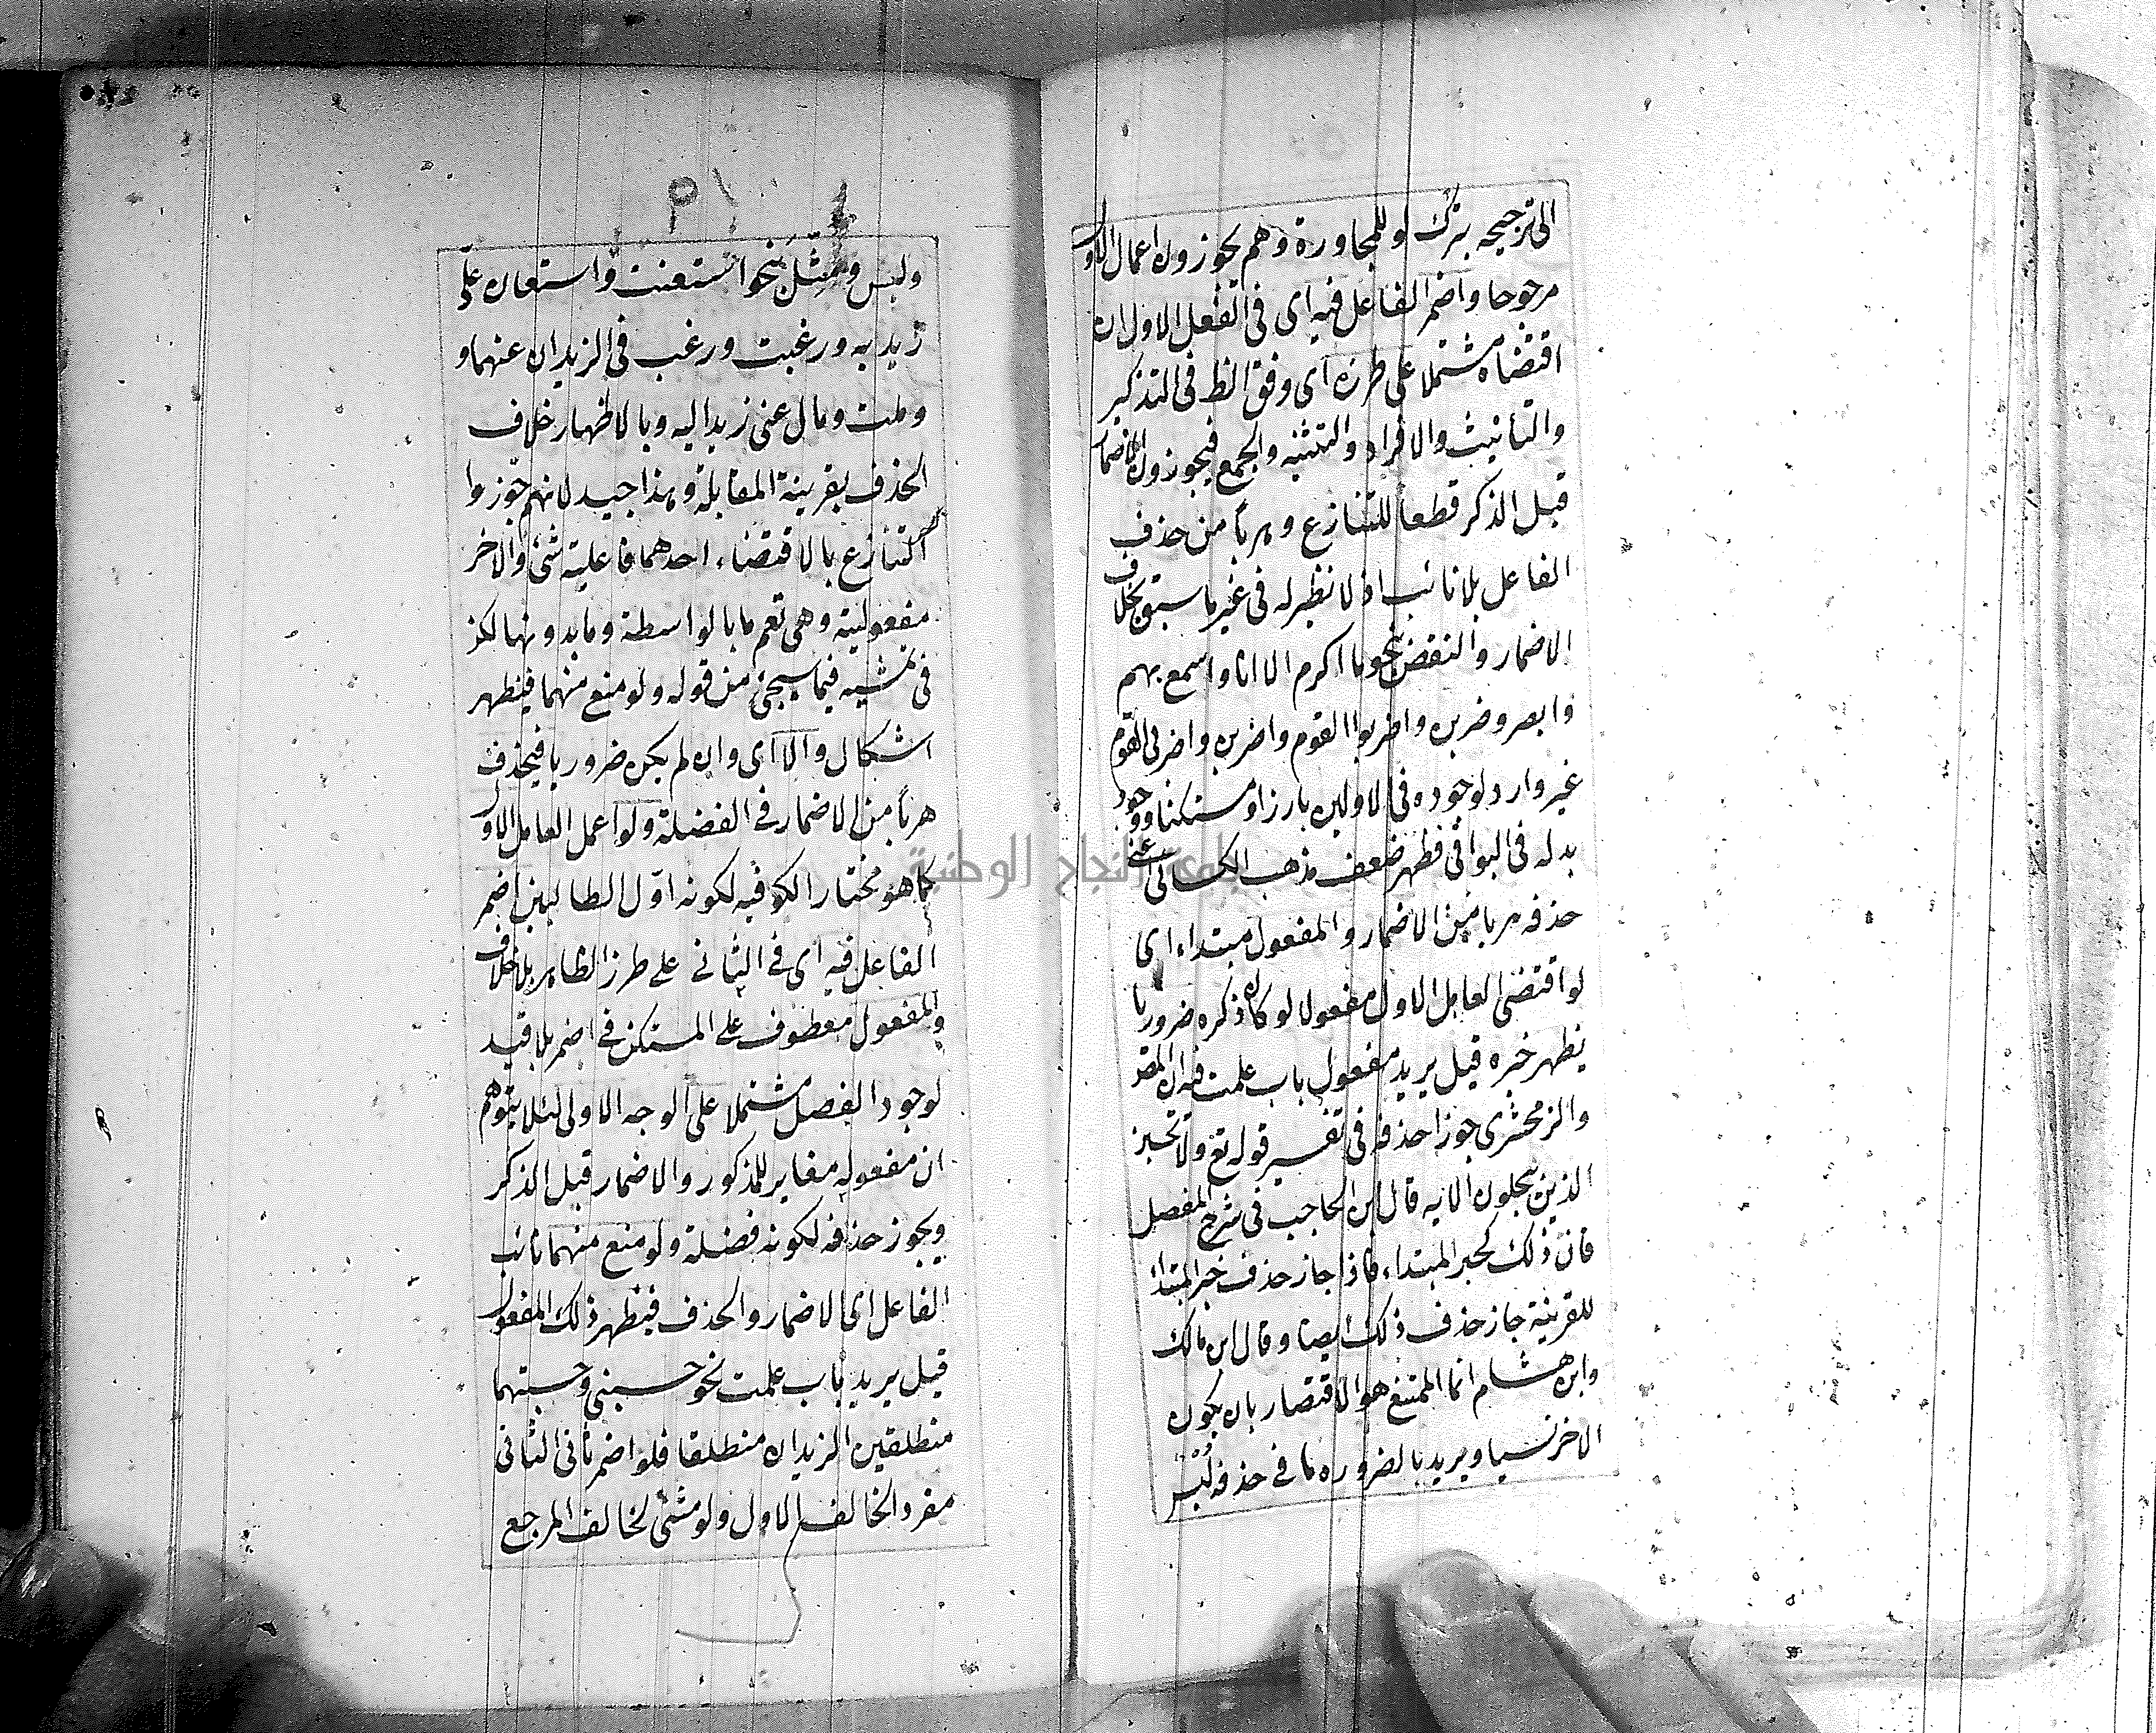 الى ترجيحه بترك لو وللمجاورة وهم يجوزون اعمال الاول
مرجوحا واضمر الفاعل فيه اى فى الفعل الاول ان
اقتضاه مشتملا على طرزه اى وفق الظ فى التذكير
والتأنيث والافراد والتثنيه والجمع فيجوزون الاضمار
قبل الذكر قطعا للتنازع وهربا من حذف
الفاعل بلا نائب اذ لا نظير له فى غير ما سبق بخلاف
الاضمار والنقض بنحو ما اكرم الا انا واسمع بهم
وابصر وضربن واضربوا القوم واضربن واضربى القوم
غير وارد لوجوده فى الاولين بارزا ومستكنا ووجود
بدله فى البواقى فظهر ضعف مذهب الكسائى عنى
حذفه هربا من الاضمار والمفعول مبتداء اى
لو اقتضى العامل الاول مفعولا لو كان ذكره ضروريا
يظهر خبره قيل يريد مفعول باب علمت فيه ان المقد
والزمخشرى جوز احذفه فى تفسير قوله تع ولا تحسبن
الذين يبخلون الايه قال ابن الحاجب فى شرح المفصل
فان ذلك كخبر المبتداء فاذا جاز حذف خبر المبتداء
للقرينة جاز حذف ذلك ايضا وقال ابن مالك
وابن هشام انما الممتنع هو الاقتصار بان يكون
الاخر نسيا ويريد بالضروره ما فى حذفه لبس
٢١
وليس ومثل بنحو استعنت واستعان على
زيد به ورغبت ورغب فى الزيدان عنهما و
وملت ومال عنى زيد اليه وبالاظهار خلاف
الحذف بقرينة المقابلة وهذا جيد لانهم جوزوا
التنازع بالاقتضاء احدهما فاعلية شئ والاخر
مفعوليته وهى تعم ما بالواسطة وما بدونها لكن
فى تمشيه فيما سيجئ من قوله ولو منع منهما فيظهر
اشكال والا اى وان لم يكن ضروريا فيحذف
هربا من الاضمار فى الفضلة ولو اعمل العامل الاول
كما هو مختار الكوفيه لكونه اول الطالبين اضمر
الفاعل فيه اى فى الثانى على طرز الظاهر بلا خلاف
والمفعول معطوف على المستكن فى اضمر بلا قيد
لوجود الفصل مشتملا على الوجه الاولى لئلا يتوهم
ان مفعوله مغاير للمذكور والاضمار قبل الذكر
ويجوز حذفه لكونه فضلة ولو منع منهما نائب
الفاعل اى الاضمار والحذف فيظهر ذلك المفعول
قيل يريد باب علمت نحو حسبنى وحسبتهما
منطلقين الزيدان منطلقا فلو اضمر فى الثانى
مفردا لخالف الاول ولو مثنى لخالف المرجع
جامعة النجاح الوطنية